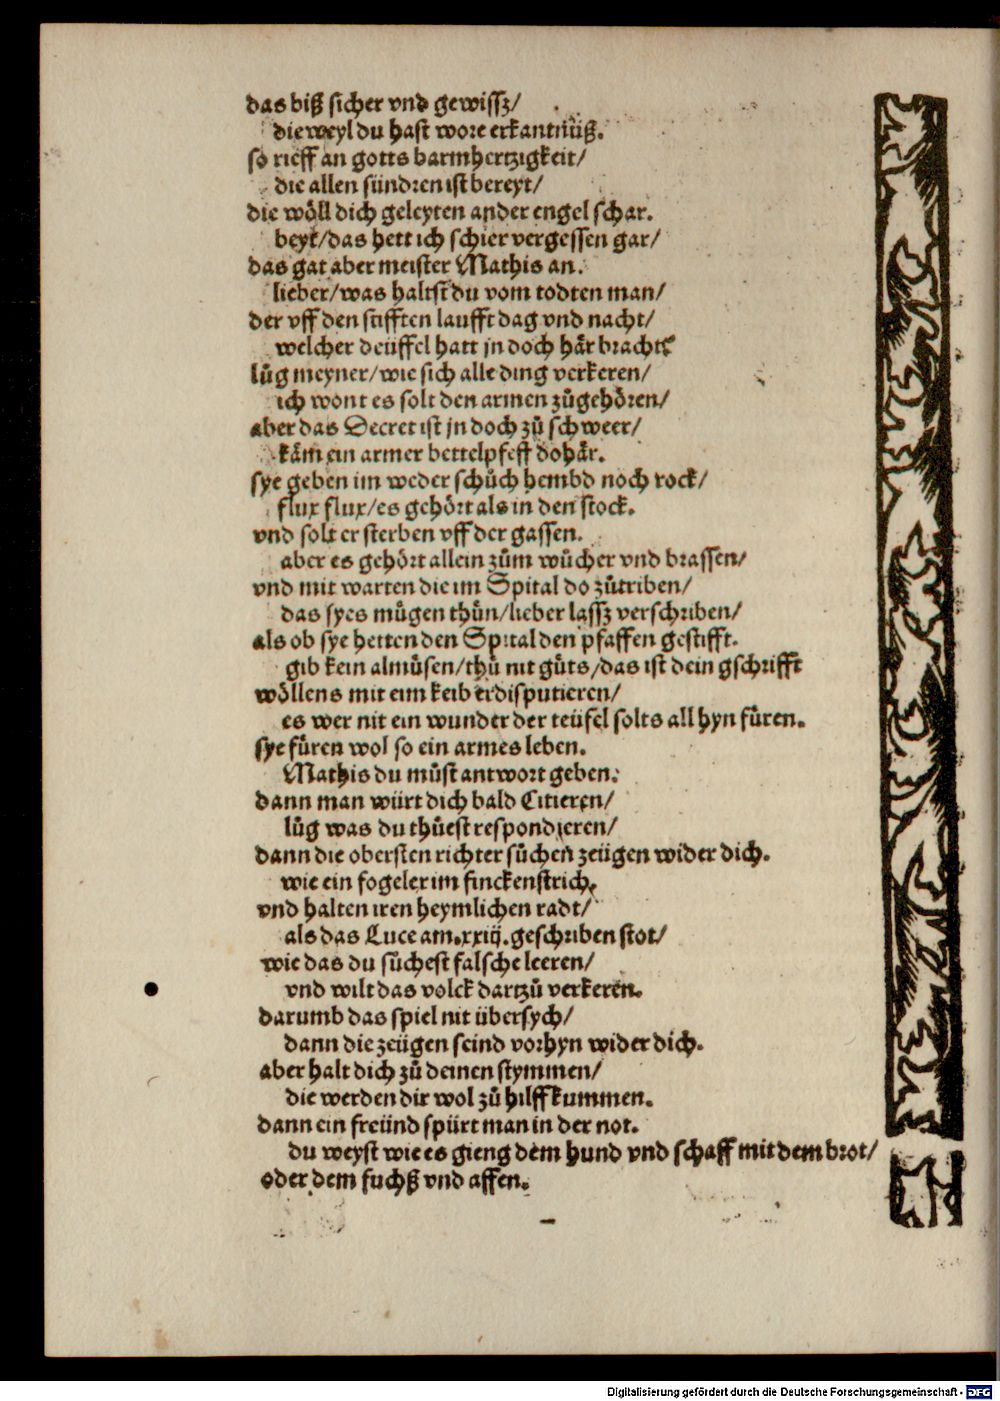 das biß sicher vnd gewissz/
die weyl du hast wore erkantnüß.
so rieff an gotts barmhertzigkeit/
die allen sündren ist bereyt/
die wöll dich geleyten an der engel schar.
beyt/das hett ich schier vergessen gar/
das gat aber meister Mathis an.
lieber/was haltst du vom todten man/
der vff den stifften laufft dag vnd nacht/
welcher deüffel hatt jn doch här bracht?
lůg meyner/wie sich alle ding verkeren/
ich wont es solt den armen zůgehören/
aber das Decret ist jn doch zů schweer/
käm ein armer bettelpfeff dohär.
sye geben im weder schůch hembd noch rock/
flux flux/es gehört als in den stock.
vnd solt er sterben vff der gassen.
aber es gehört allein zům wůcher vnd brassen/
vnd mit warten die im Spital do zůtriben/
das syes mügen thůn/lieber lassz verschriben/
als ob sye hetten den Spital den pfaffen gestifft.
gib kein almůsen/thů nit gůts/das ist dein gschrifft
wöllens mit eim keib erdisputieren/
es wer nit ein wunder der teüfel solts all hyn füren.
sye füren wol so ein armes leben.
Mathis du můst antwort geben.
dann man würt dich bald Citieren/
lůg was du thůest respondieren/
dann die obersten richter sůchen zeügen wider dich.
wie ein fogeler im finckenstrich,
vnd halten iren heymlichen radt/
als das Luce am.xxij.geschriben stot/
wie das du sůchest falsche leeren/
vnd wilt das volck dartzů verkeren.
darumb das spiel nit übersych/
dann die zeügen seind vorhyn wider dich.
aber halt dich zů deinen stymmen/
die werden dir wol zů hilff kummen.
dann ein freünd spürt man in der not.
du weyst wie es gieng dem hund vnd schaff mit dem brot/
oder dem fuchß vnd affen.
Digitalisierung gefördert durch die Deutsche Forschungsgemeinschaft - DFG